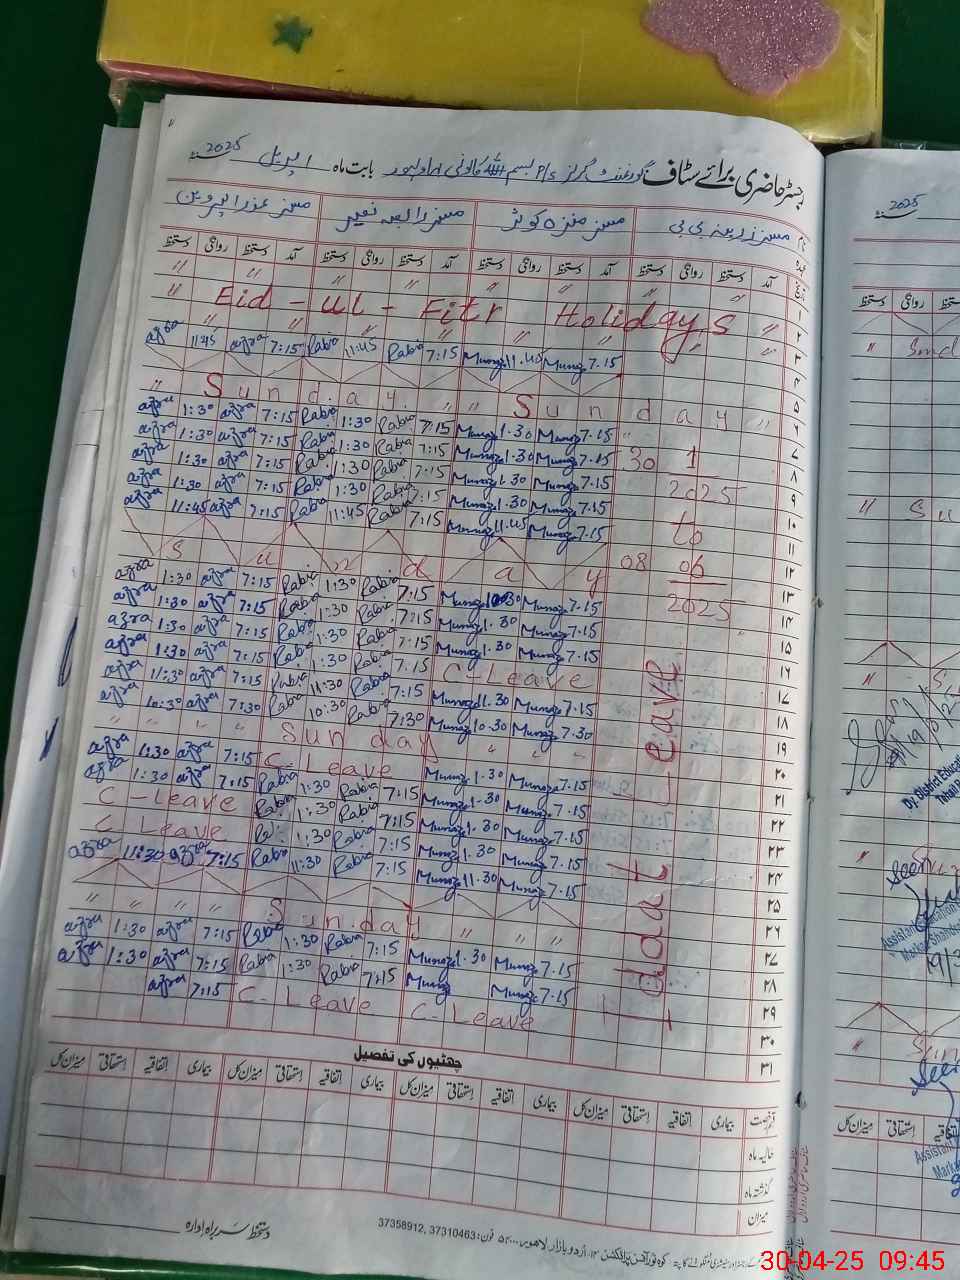 رجسٹر حاضری برائے سٹاف گورنمنٹ گرلز P/S بسم اللہ کالونی ہراولپور بابت ماہ اپریل 2025 سنہ
نام مسز زرینہ بی بی مسز منزہ کوثر مسز رابعہ نعیم مسز عذرا پروین
عہدہ
تاریخ آمد دستخط روانگی دستخط آمد دستخط روانگی دستخط آمد دستخط روانگی دستخط آمد دستخط روانگی دستخط
۱ " " " " "
۲ " Eid - Ul - Fitr Holidays "
۳ " " " " " "
۴ azra 11:45 azra 7:15 Rabia 11:45 Rabia 7:15 Munaz 11.45 Munaz 7.15
۵
۶ " Sunday " " Sunday "
۷ azra 1:30 azra 7:15 Rabia 1:30 Rabia 7:15 Munaz 1.30 Munaz 7.15
۸ azra 1:30 azra 7:15 Rabia 1:30 Rabia 7:15 Munaz 1.30 Munaz 7.15 30 1
۹ azra 1:30 azra 7:15 Rabia 1:30 Rabia 7:15 Munaz 1.30 Munaz 7.15 2025
۱۰ azra 1:30 azra 7:15 Rabia 1:30 Rabia 7:15 Munaz 1.30 Munaz 7.15 to
۱۱ azra 11:45 azra 7:15 Rabia 11:45 Rabia 7:15 Munaz 11.45 Munaz 7.15
۱۲ 08 06
۱۳ Sunday 2025
۱۴ azra 1:30 azra 7:15 Rabia 1:30 Rabia 7:15 Munaz 1.30 Munaz 7.15
۱۵ azra 1:30 azra 7:15 Rabia 1:30 Rabia 7:15 Munaz 1.30 Munaz 7.15
۱۶ azra 1:30 azra 7:15 Rabia 1:30 Rabia 7:15 Munaz 1.30 Munaz 7.15
۱۷ azra 1:30 azra 7:15 Rabia 1:30 Rabia 7:15 C-Leave
۱۸ azra 11:30 azra 7:15 Rabia 11:30 Rabia 7:15 Munaz 11.30 Munaz 7.15
۱۹ azra 10:30 azra 7:30 Rabia 10:30 Rabia 7:30 Munaz 10.30 Munaz 7.30
۲۰ " " " " Sunday " " "
۲۱ azra 1:30 azra 7:15 C-Leave Munaz 1.30 Munaz 7.15
۲۲ azra 1:30 azra 7:15 Rabia 1:30 Rabia 7:15 Munaz 1.30 Munaz 7.15
۲۳ C-Leave Rabia 1:30 Rabia 7:15 Munaz 1.30 Munaz 7.15
۲۴ C Leave Rabia 1:30 Rabia 7:15 Munaz 1.30 Munaz 7.15
۲۵ azra 11:30 azra 7:15 Rabia 11:30 Rabia 7:15 Munaz 11.30 Munaz 7.15
۲۶
۲۷ " " " " Sunday " " "
۲۸ azra 1:30 azra 7:15 Rabia 1:30 Rabia 7:15 Munaz 1.30 Munaz 7.15
۲۹ azra 1:30 azra 7:15 Rabia 1:30 Rabia 7:15 Munaz Munaz 7.15
۳۰ azra 7:15 C-Leave C-Leave
۳۱
Iddat Leave
چھٹیوں کی تفصیل
قسم رخصت بیماری اتفاقیہ استحقاقی میزان کل بیماری اتفاقیہ استحقاقی میزان کل بیماری اتفاقیہ استحقاقی میزان کل بیماری اتفاقیہ استحقاقی میزان کل
حالیہ ماہ
گذشتہ ماہ
میزان
دستخط سربراہ ادارہ
اردو بازار لاہور فون: 37310463, 37358912
2025 سنہ
دستخط روانگی
District Education
Seen
Assistant Education
Seen
Assistant
میزان کل استحقاقی اتفاقیہ
30-04-25 09:45